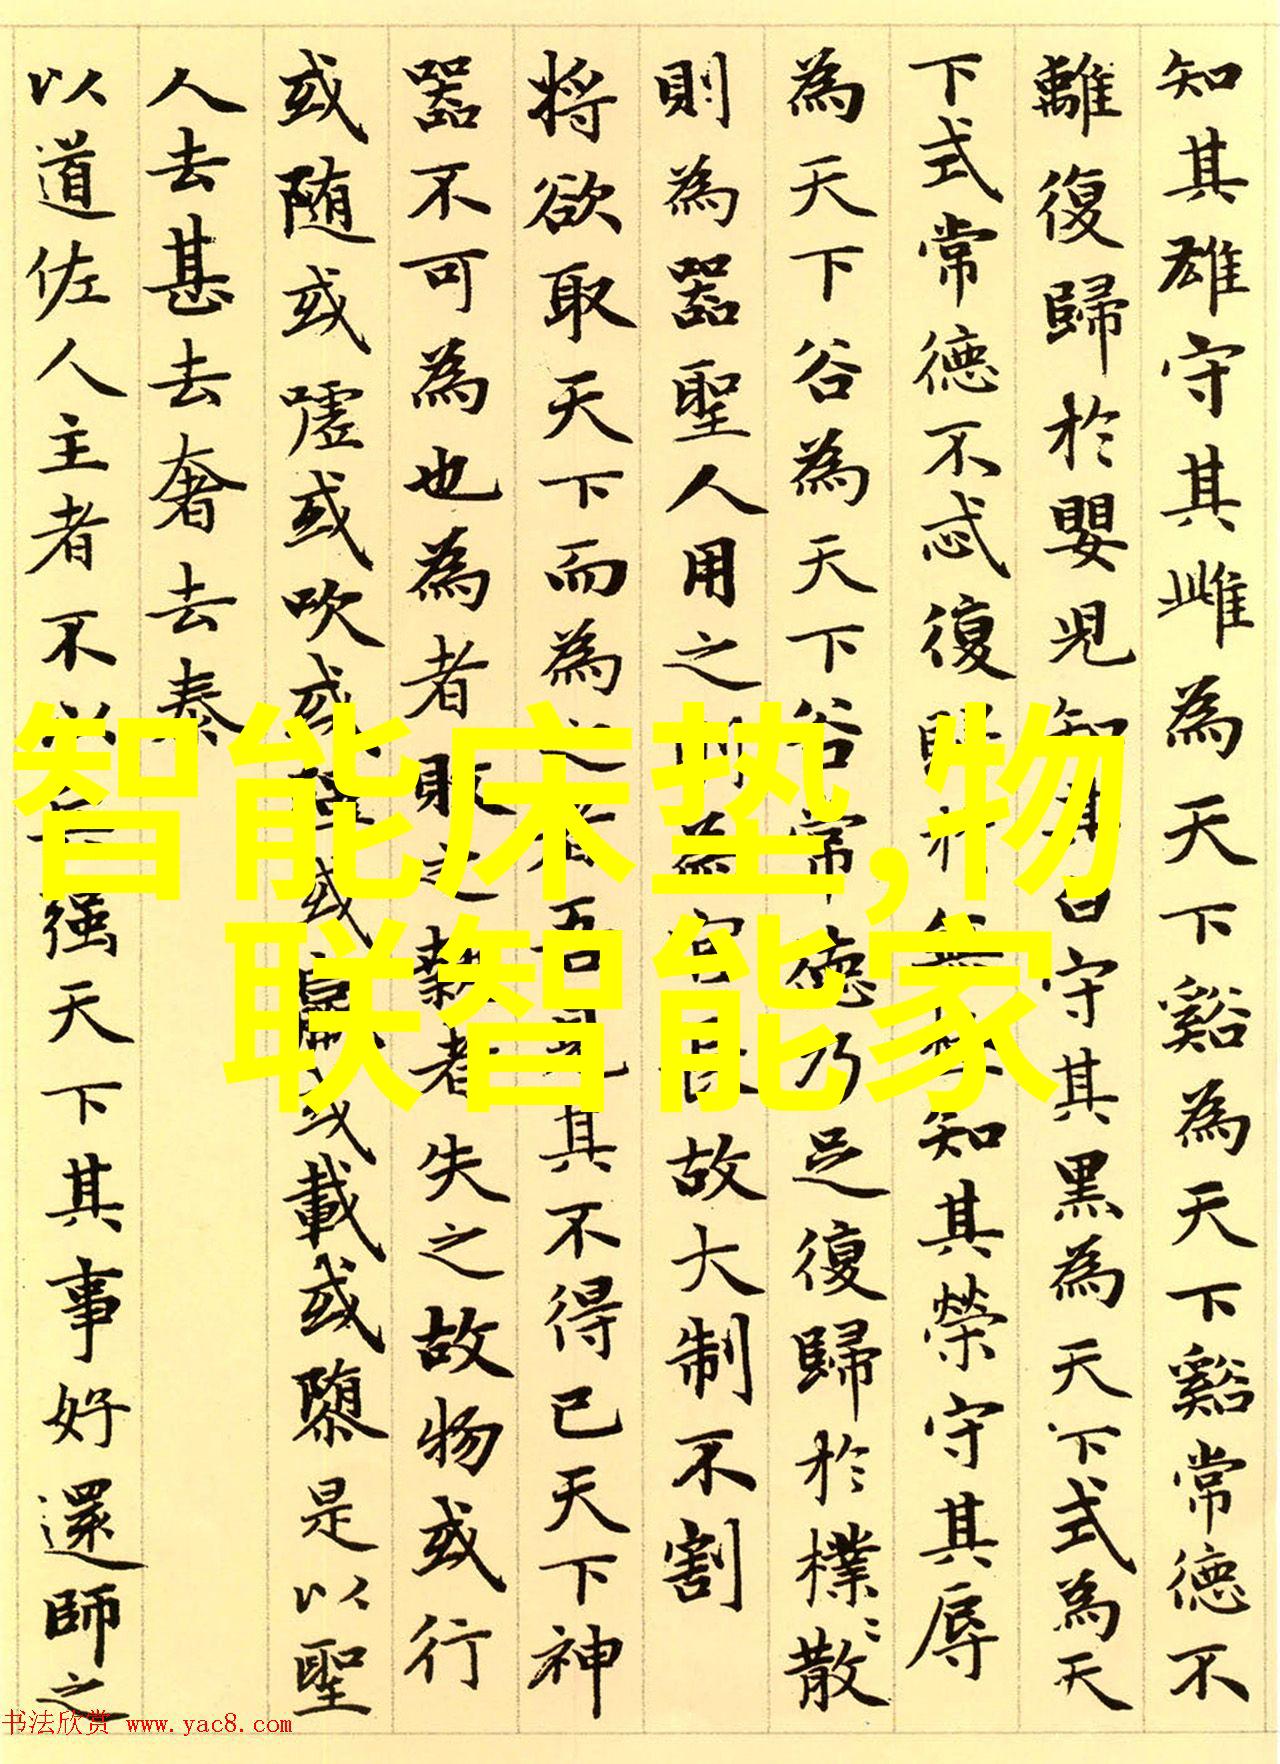 知其雄守其雌為天下谿為天下谿常德不
離復歸於嬰児知其白守其黑為天下式為天
下式常德不忒復歸於無極知其榮守其辱
為天下谷為天下谷常德乃足復歸於樸〻散
則為器聖人用之則為官長故大制不割
将欲取天下而為之者吾見其不得已天下神
器不可為也為者敗之執者失之故物或行
或随或噓或吹或強或羸或載或隳是以聖
人去甚去奢去泰
以道佐人主者不以兵强天下其事好還師之
智能床垫,物
联智能家
书法欣赏 www.yac8.com